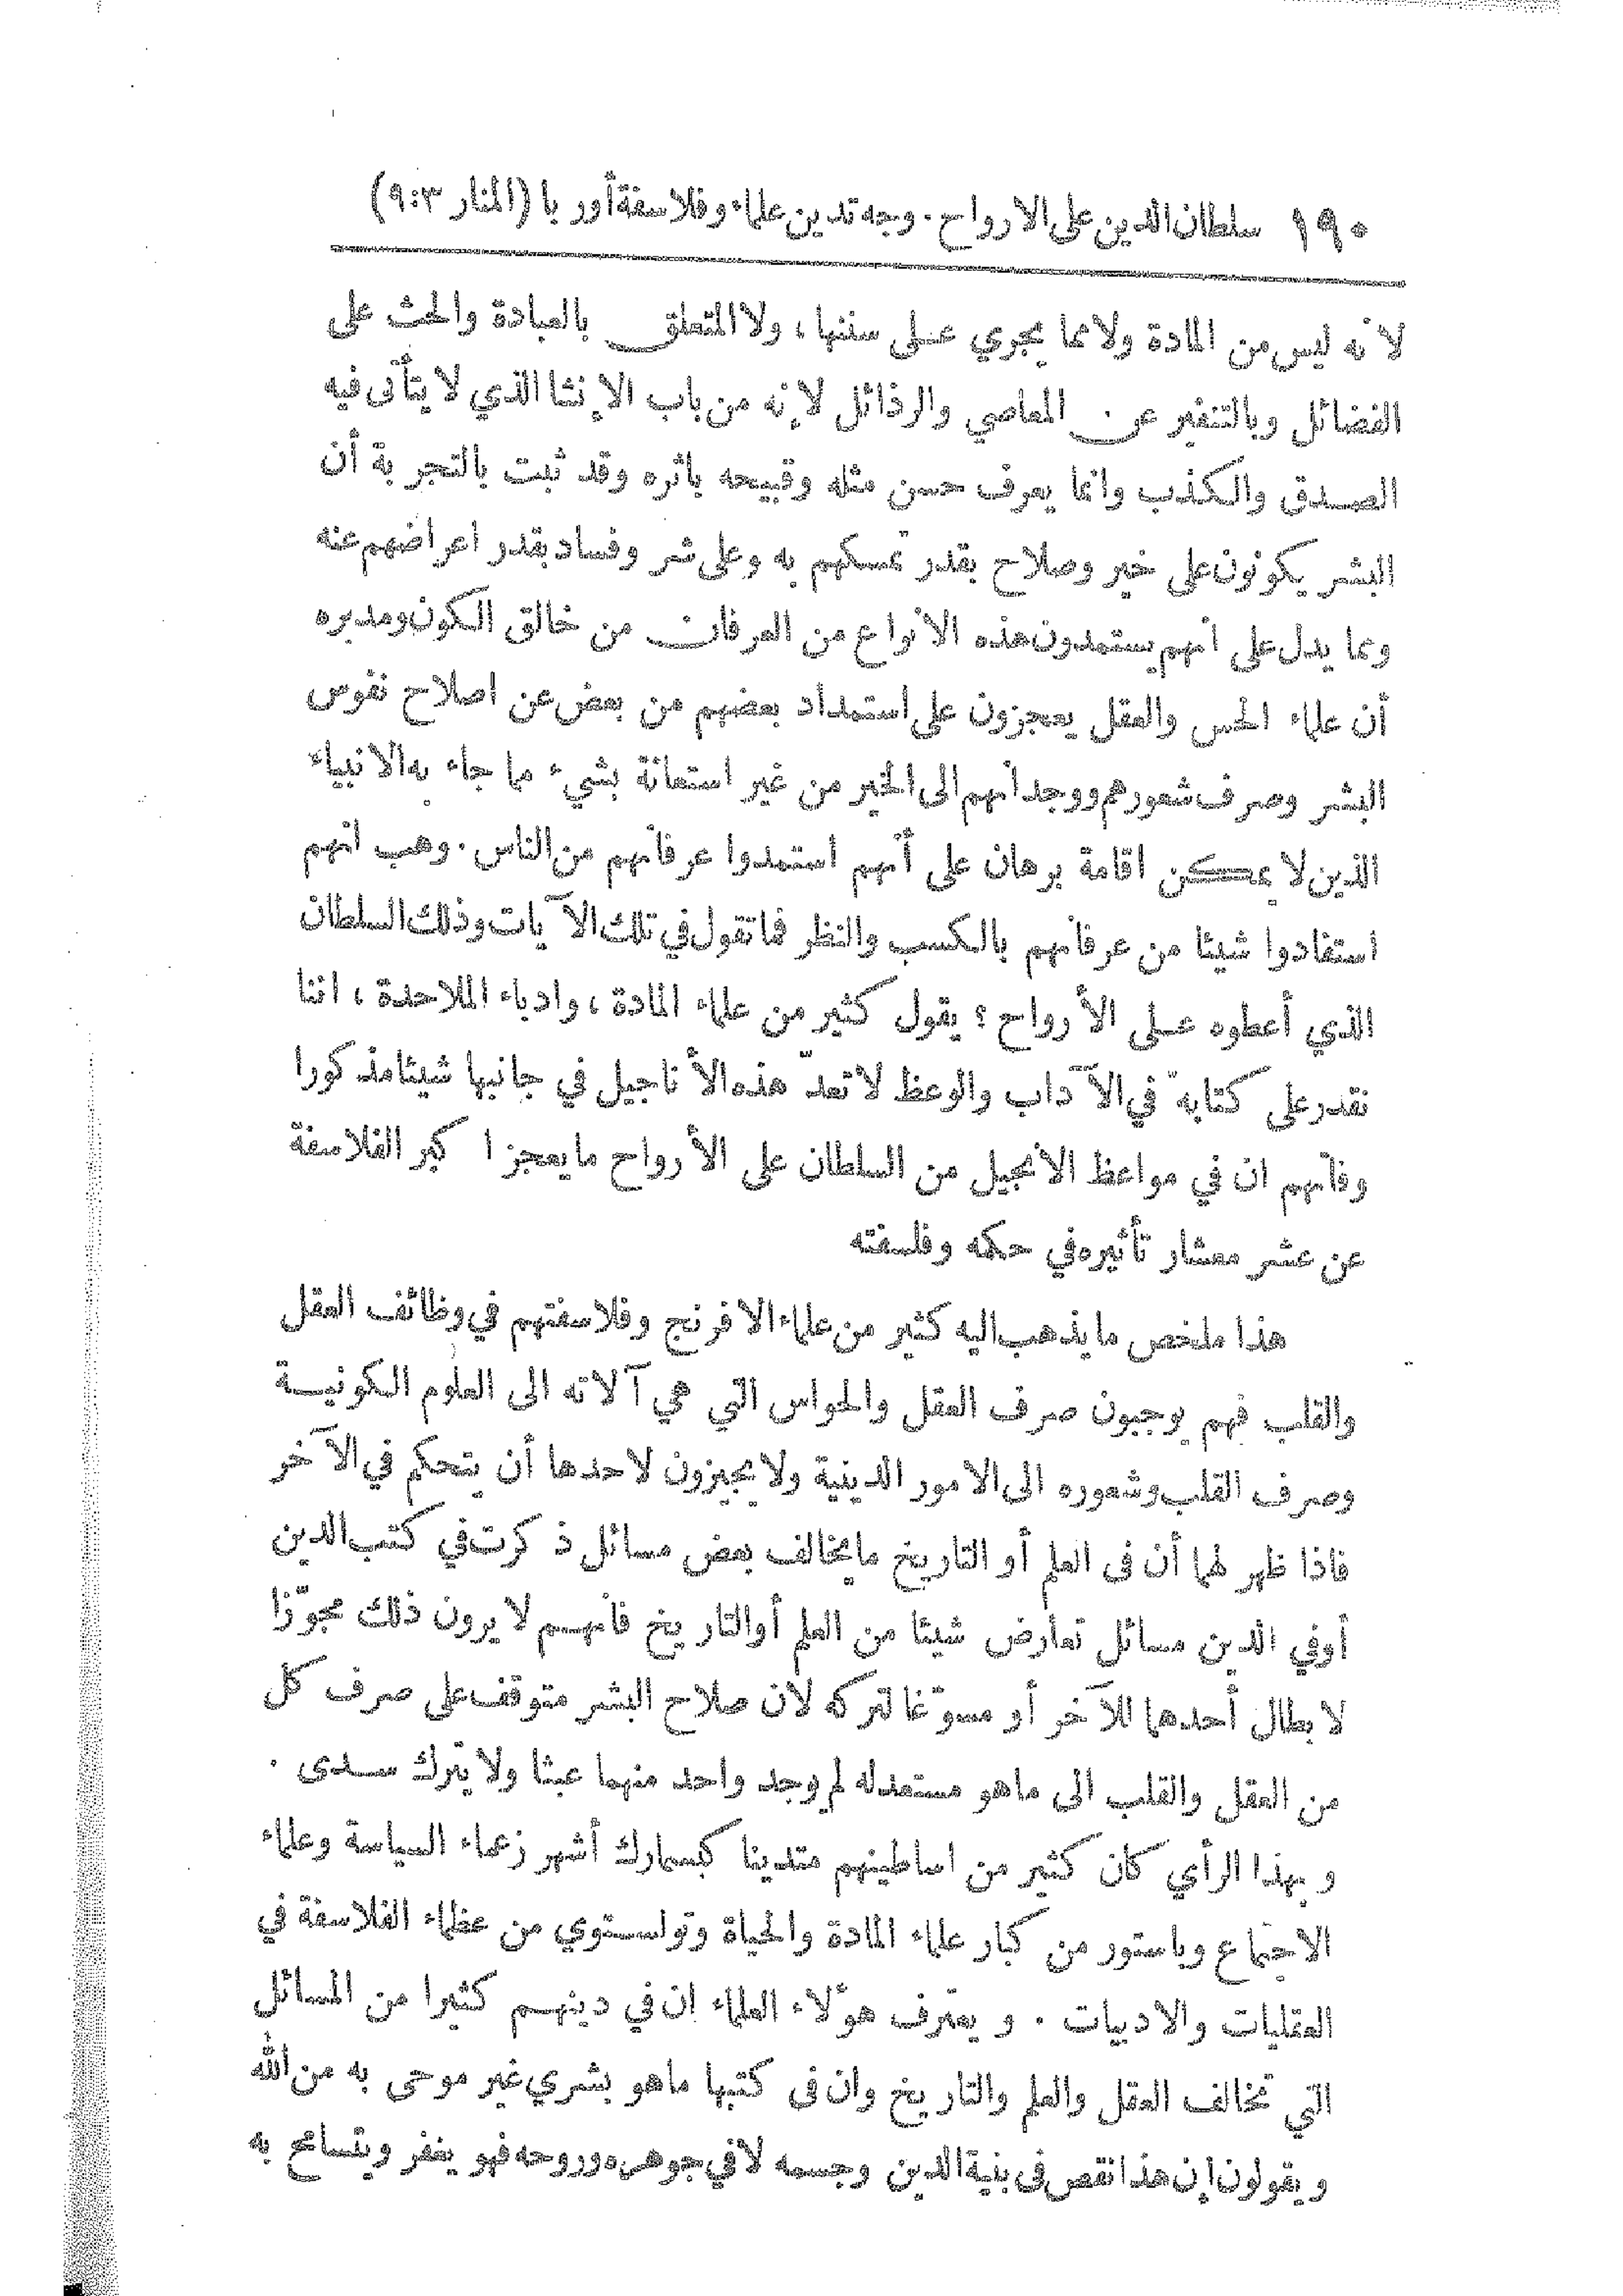 ١٩٠ سلطان الدين على الارواح . وجه تدين علماء وفلاسفة أوربا (المنار ٩:٣)
لأنه ليس من المادة ولا مما يجري عـلى سننها ، ولا المتعلق بالعبادة والحث على
الفضائل وبالتنفير عن المعاصي والرذائل لإنه من باب الإنشا الذي لا يتأتى فيه
الصدق والكذب وانما يعرف حسن مثله وقبيحه باثره وقد ثبت بالتجربة أن
البشر يكونون على خير وصلاح بقدر تمسكهم به وعلى شر وفساد بقدر اعراضهم عنه
ومما يدل على أنهم يستمدون هذه الانواع من العرفان من خالق الكون ومدبره
أن علماء الحس والعقل يعجزون على استمداد بعضهم من بعض عن اصلاح نفوس
البشر وصرف شعورهم ووجدانهم الى الخير من غير استعانة بشيء مما جاء به الانبياء
الذين لا يمكن اقامة برهان على أنهم استمدوا عرفانهم من الناس . وهب انهم
استفادوا شيئا من عرفانهم بالكسب والنظر فما تقول في تلك الآيات وذلك السلطان
الذي أعطوه عـلى الأرواح ؟ يقول كثير من علماء المادة ، وادباء الملاحدة ، اننا
نقدر على كتابة في الآداب والوعظ لا تعدّ هذه الأناجيل في جانبها شيئا مذكورا
وفاتهم ان في مواعظ الانجيل من السلطان على الأرواح ما يعجز اكبر الفلاسفة
عن عشر معشار تأثيره في حكمه وفلسفته
هذا ملخص ما يذهب اليه كثير من علماء الافرنج وفلاسفتهم في وظائف العقل
والقلب فهم يوجبون صرف العقل والحواس التي هي آلاته الى العلوم الكونيـة
وصرف القلب وشعوره الى الامور الدينية ولا يجيزون لاحدها أن يتحكم في الآخر
فاذا ظهر لهما أن فى العلم أو التاريخ ما يخالف بعض مسائل ذكرت في كتب الدين
أوفي الدين مسائل تعارض شيئا من العلم أو التاريخ فانهـم لا يرون ذلك مجوّزا
لابطال أحدهما للآخر أو مسوّغا لتركه لان صلاح البشر متوقف على صرف كل
من العقل والقلب الى ما هو مستعد له لم يوجد واحد منهما عبثا ولا يترك سـدى .
وبهذا الرأي كان كثير من اساطينهم متدينا كبسمارك أشهر زعماء السياسة وعلماء
الاجتماع وباستور من كبار علماء المادة والحياة وتولسـتوي من عظماء الفلاسفة في
العقليات والادبيات . ويعترف هؤلاء العلماء ان في دينهـم كثيرا من المسائل
التي تخالف العقل والعلم والتاريخ وان فى كتبها ما هو بشري غير موحى به من الله
ويقولون إن هذا نقص فى بنية الدين وجسمه لا في جوهره وروحه فهو يغفر ويتسامح به